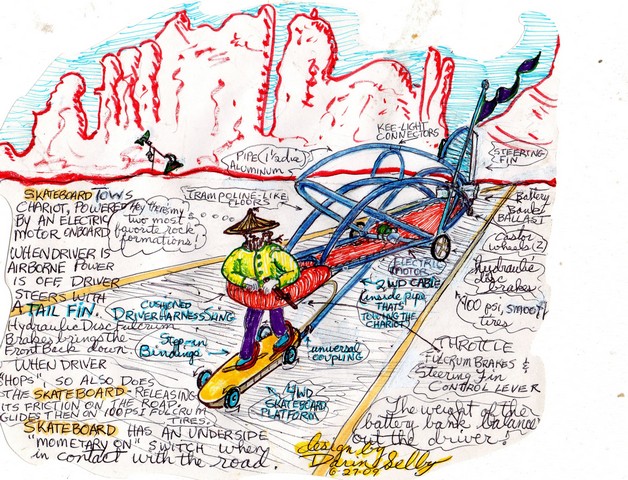 KEE-LIGHT
CONNECTORS
PIPE (1¼ dia)
ALUMINUM
STEERING
FIN
SKATEBOARD TOWS
CHARIOT, POWERED
BY AN ELECTRIC
MOTOR ONBOARD
Hey there's my
two most
favorite rock
formations!
TRAMPOLINE-LIKE
FLOORS
Battery
Bank/
BALLAST
castor
wheels (2)
hydraulic
disc
brakes
100 psi, smooth
tires
WHEN DRIVER IS
AIRBORNE POWER
IS OFF DRIVER
STEERS WITH
A TAIL FIN.
Hydraulic Disc Fulcrum
Brakes brings the
Front Back down.
CUSHIONED
DRIVER HARNESS/SLING
Step-in
Bindings
ELECTRIC
MOTOR
2WD CABLE
(inside pipe
THATS
TOWING THE
CHARIOT)
universal
coupling
THROTTLE
FULCRUM BRAKES &
Steering Fin
CONTROL LEVER
4WD
SKATEBOARD
PLATFORM
WHEN DRIVER
"HOPS", SO ALSO DOES
THE SKATEBOARD - RELEASING
ITS FRICTION ON THE ROAD,
GLIDES THEN ON 100 PSI FULCRUM
TIRES.
SKATEBOARD HAS AN UNDERSIDE
"MOMETARY ON" SWITCH when
in contact with the road.
The weight of the
battery bank balance
out the driver!
design by
Darin Selby
6-27-09